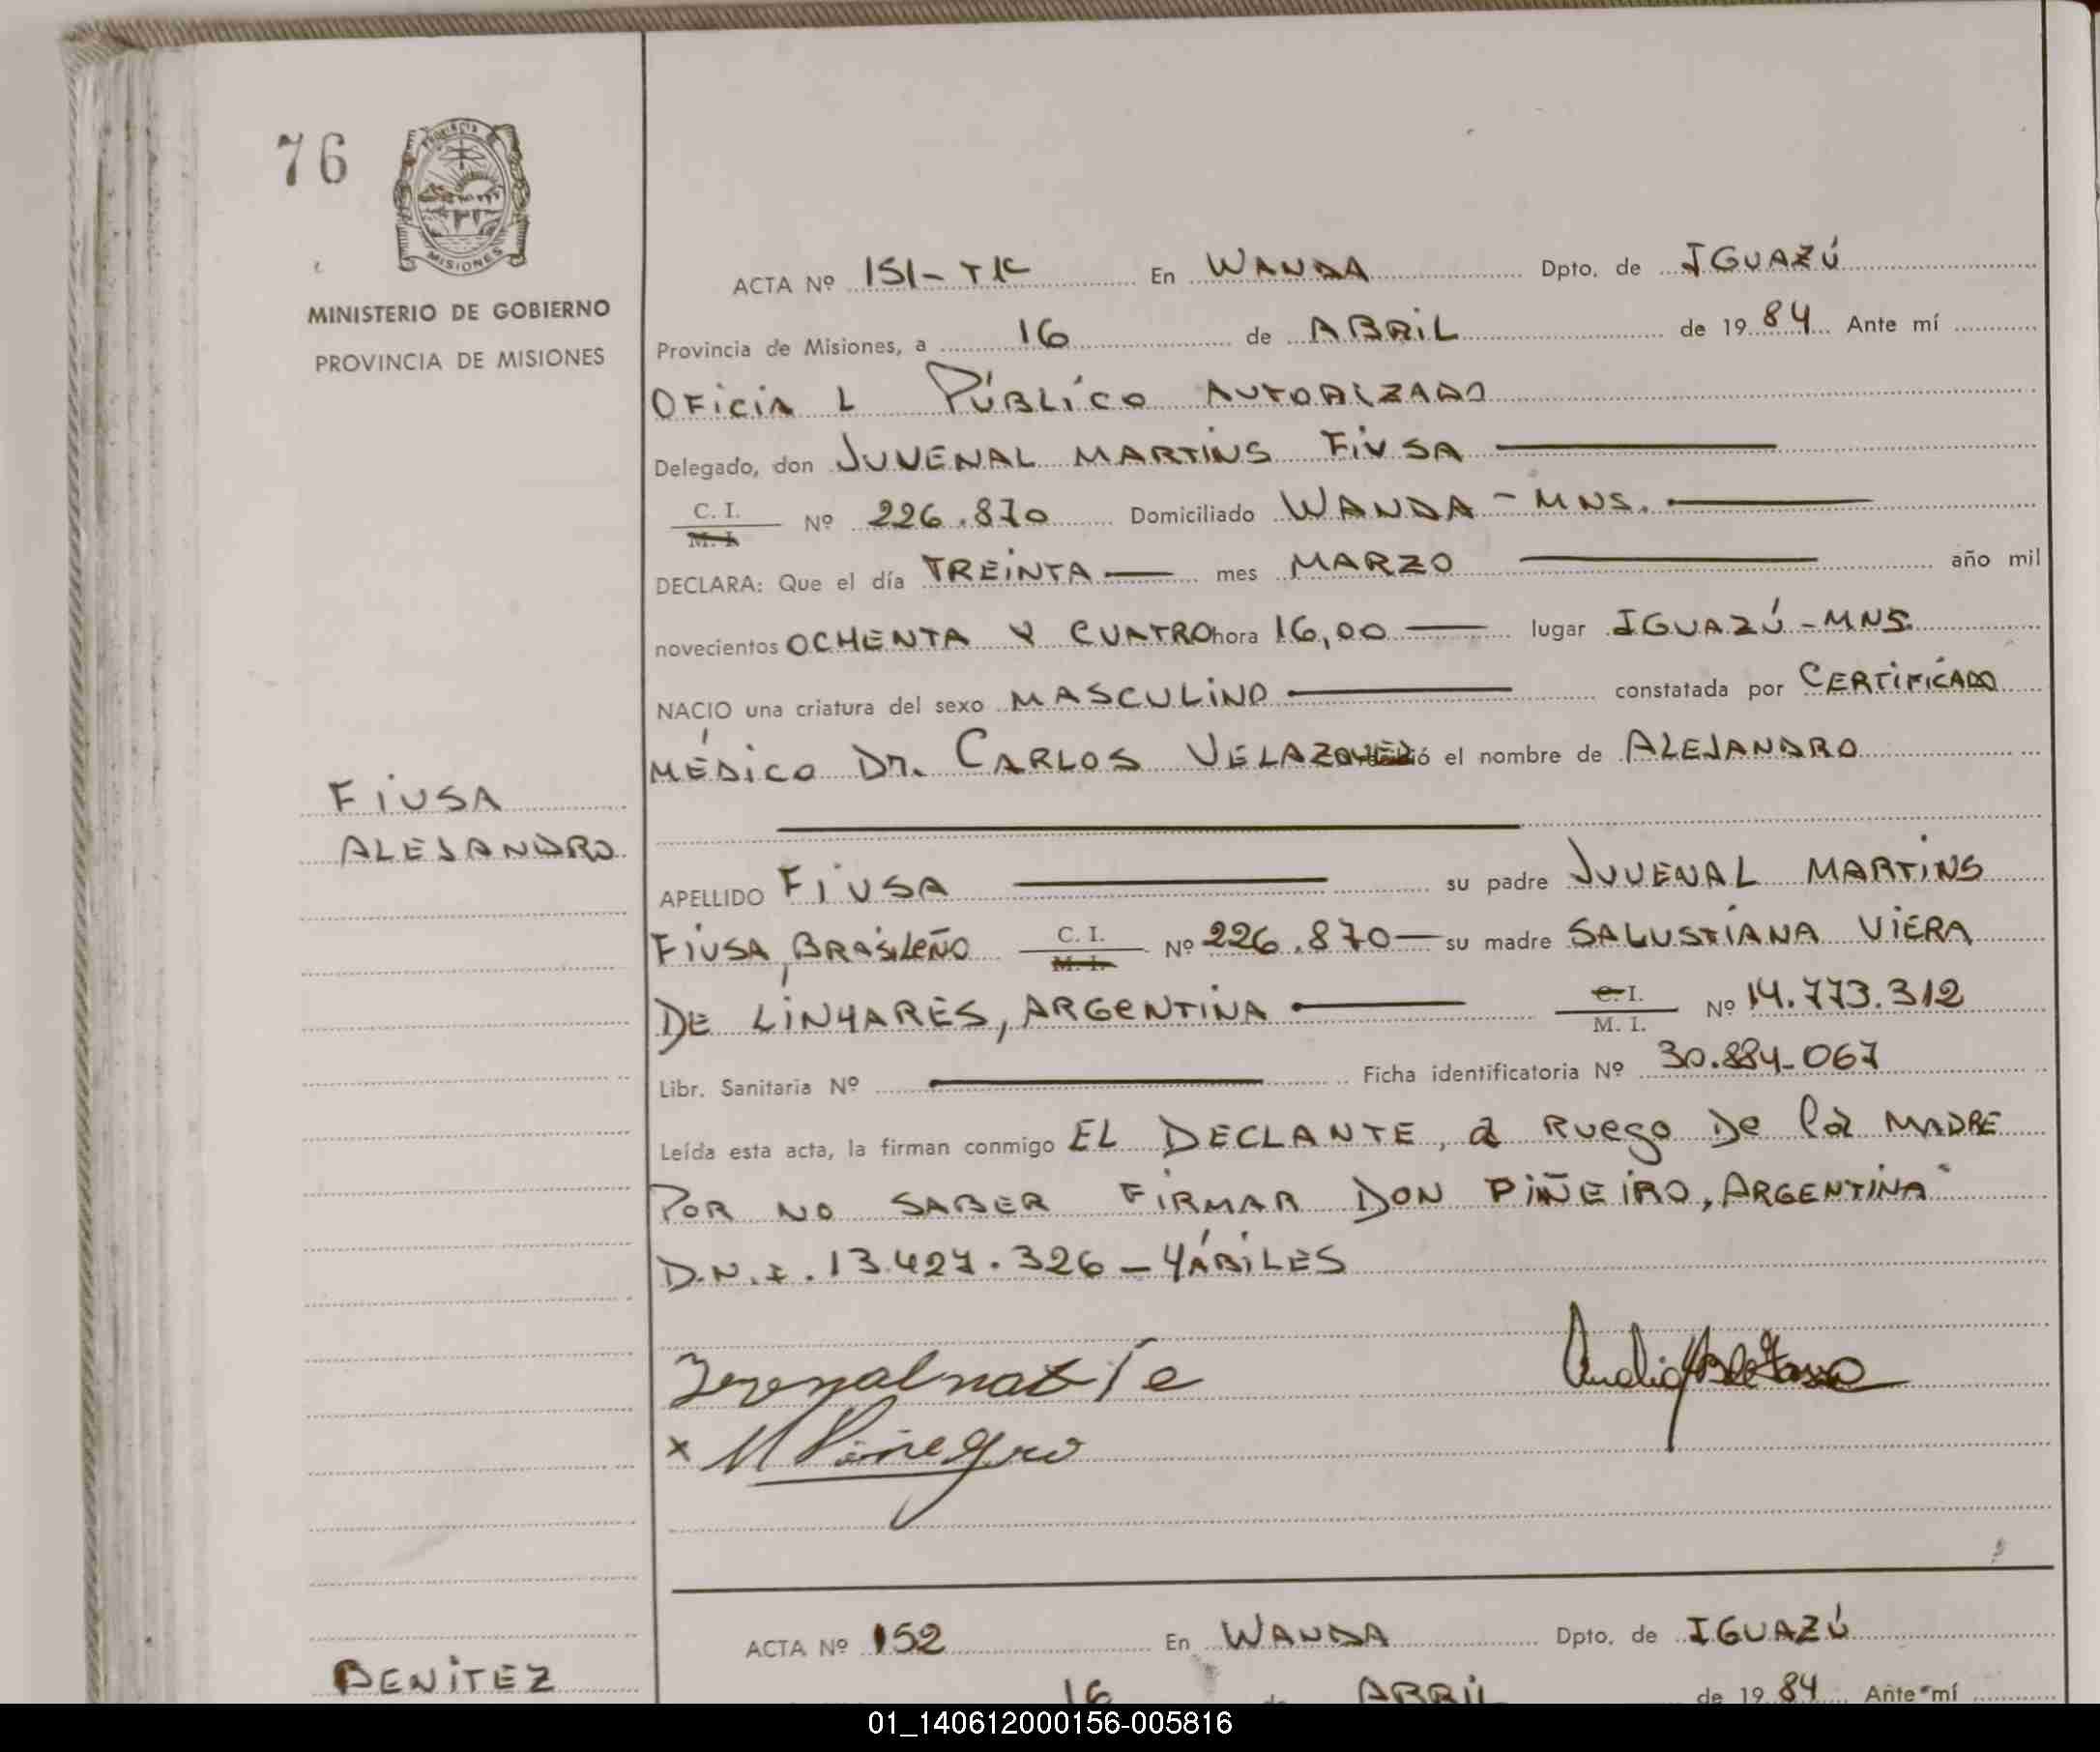 76
PROVINCIA
MISIONES
MINISTERIO DE GOBIERNO
PROVINCIA DE MISIONES
ACTA Nº 151-TK En WANDA Dpto. de IGUAZÚ
Provincia de Misiones, a 16 de ABRIL de 1984 Ante mí
OFICIAL PÚBLICO AUTORIZADO
Delegado, don JUVENAL MARTINS FIUSA
C. I. M. I. Nº 226.870 Domiciliado WANDA - MNS.
DECLARA: Que el día TREINTA mes MARZO año mil
novecientos OCHENTA Y CUATRO hora 16,00 lugar IGUAZÚ - MNS
NACIO una criatura del sexo MASCULINO constatada por CERTIFICADO
MÉDICO Dr. CARLOS VELAZQUEZ ió el nombre de ALEJANDRO
FIUSA
ALEJANDRO
APELLIDO FIUSA su padre JUVENAL MARTINS
FIUSA, BRASILEÑO C. I. M. I. Nº 226.870 su madre SALUSTIANA VIERA
DE LINHARES, ARGENTINA C. I. M. I. Nº 14.773.312
Libr. Sanitaria Nº Ficha identificatoria Nº 30.884.067
Leída esta acta, la firman conmigo EL DECLANTE, a Ruego De la MADRE
POR NO SABER FIRMAR DON PIÑEIRO, ARGENTINA
D.N.I. 13.427.326 - HÁBILES
x M
ACTA Nº 152 En WANDA Dpto. de IGUAZÚ
BENITEZ
16 de ABRIL de 1984 Ante mí
01_140612000156-005816